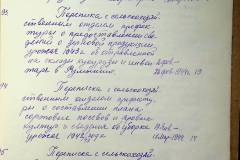 93 Переписка с сельскохозяй-
ственным отделом префек-
туры о предоставлении све-
дений о зерновой продукции
урожая 1943г. об отправленной
на склады кукурузы и
в Румынию.
1944г. 19
94 Переписка с сельскохозяй-
ственным отделом префекту-
ры о составлении плана
сортовых посевов и
культур и сведения об уборке
урожая 1942 года 1944г. 14
95 Переписка с сельскохозяй-